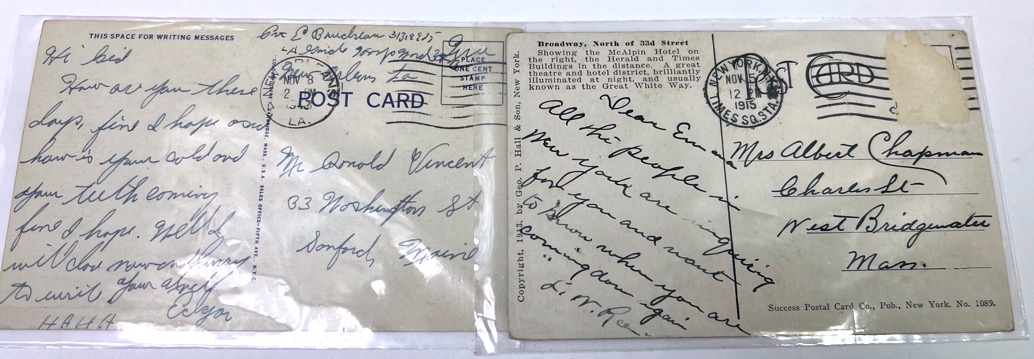 THIS SPACE FOR WRITING MESSAGES
Hi kid
How are you these
days, fine I hope and
how is your cold and
your teeth coming
fine I hope. Well I
will close now and hurry
to writ your
HAHA
Pvt E Boucheau
Free
New Orleans La
NOV 8
LA.
PLACE
ONE CENT
STAMP
HERE
POST CARD
Mr Donold Vincent
83 Washington St
Sanford, Maine
Broadway, North of 33d Street
Showing the McAlpin Hotel on
the right, the Herald and Times
Buildings in the distance. A great
theatre and hotel district, brilliantly
illuminated at night and usually
known as the Great White Way.
Copyright, by Geo. P. Hall & Son, New York.
Dear Emma
All the people in
New York are inquiring
for you and want
to know when you are
coming down again
NEW YORK, N.Y.
NOV 5
12 PM
1915
TIMES SQ. STA.
CARD
Mrs Albert Chapman
Charles St
West Bridgewater
Mass.
Success Postal Card Co., Pub., New York. No. 1089.